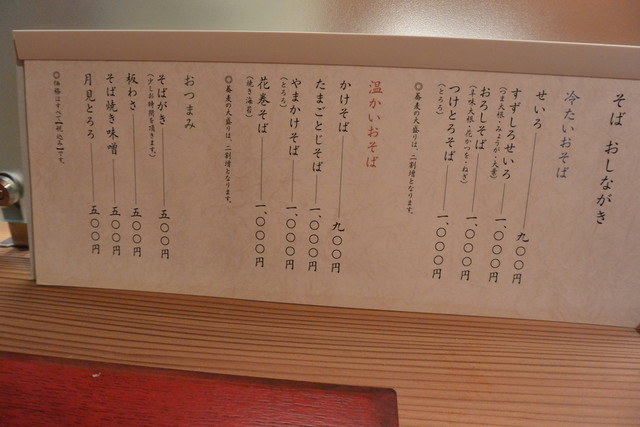 そば おしながき
冷たいおそば
せいろ 九〇〇円
すずしろせいろ 一、〇〇〇円
(つま大根・みょうが・大葉)
おろしそば 一、〇〇〇円
(辛味大根・花かつを・ねぎ)
つけとろそば 一、〇〇〇円
(とろろ)
◎蕎麦の大盛りは、二割増となります。
温かいおそば
かけそば 九〇〇円
たまごとじそば 一、〇〇〇円
やまかけそば 一、〇〇〇円
(とろろ)
花巻そば 一、〇〇〇円
(焼き海苔)
◎蕎麦の大盛りは、二割増となります。
おつまみ
そばがき 五〇〇円
(少しお時間を頂きます。)
板わさ 五〇〇円
そば焼き味噌 五〇〇円
月見とろろ 五〇〇円
◎価格はすべて【税込み】です。